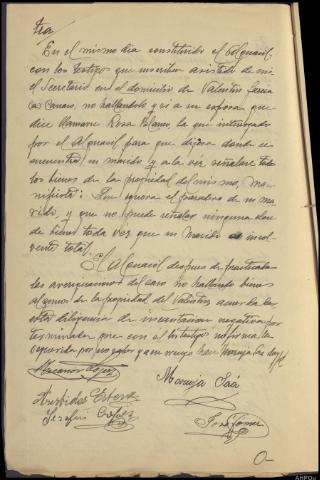 tra/
En el mismo dia constituido el Alguacil
con los testigos que suscriben asistido de mi
el Secretario en el domicilio de Valentin
no hallandolo y si a su esposa que
dice llamarse Rosa Blanco, la que interrogada
por el Alguacil para que dijera donde se
encuentra su marido y a la vez señalare todos
los bienes de la propiedad del mismo, ma-
nifiesta: Que ignora el paradero de su ma-
rido, y que no puede señalar ninguna clase
de bienes toda vez que su marido es insol-
vente total.
El Alguacil despues de practicadas
las averiguaciones del caso no hallando bienes
algunos de la propiedad del Valentin acuerda la
diligencia de negativa por
terminada que con el testigos no firma la
requerida por no y a su ruego
Maruja Saá
Serafin
José Gomez
AHPOu